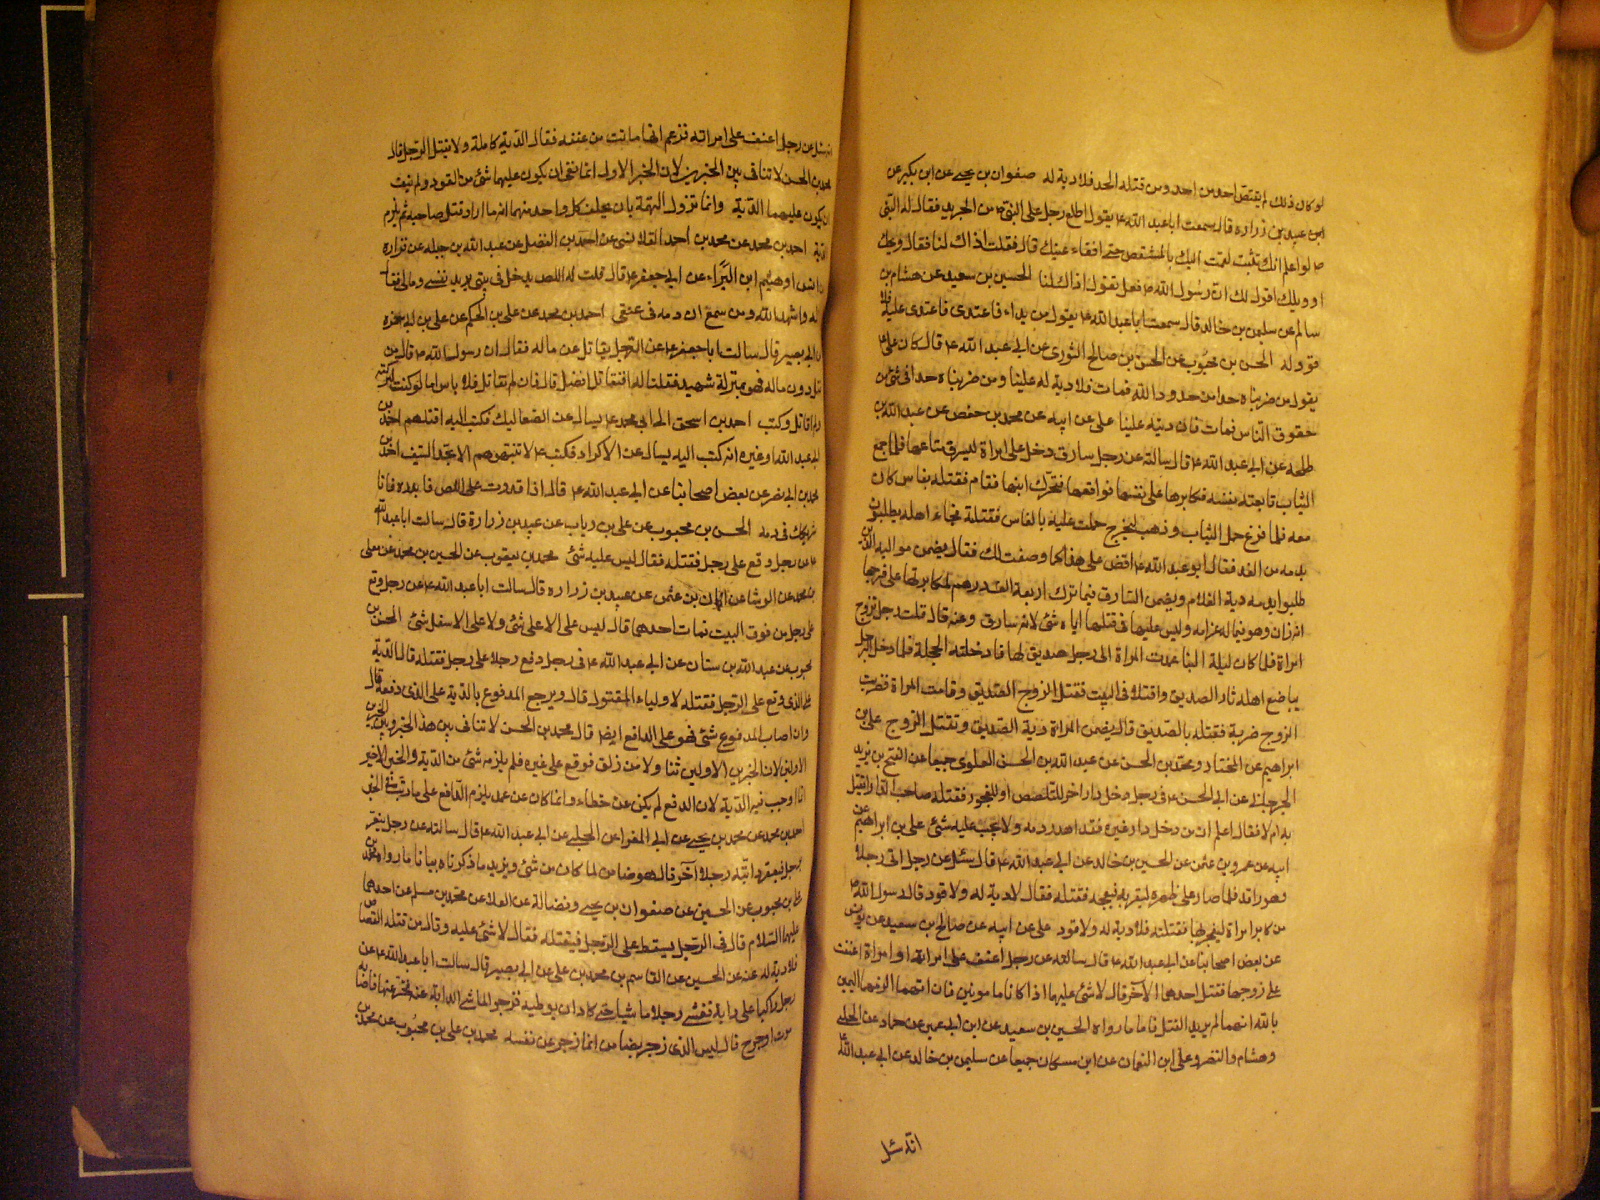 لو كان ذلك لم يقتص احد من احد ومن قتله الحد فلا دية له صفوان بن يحيى عن ابن بكير عن
عبيد بن زرارة قال سمعت ابا عبد الله ع يقول اطلع رجل على النبي ص من الجريد فقال له النبي
ص لو اعلم انك تثبت لقمت اليك بالمشقص حتى افقاء عينك قال فقلت اذاك لنا فقال ويحك
او ويلك اقول لك ان رسول الله ص فعل تقول اذاك لنا الحسين بن سعيد عن هشام بن
سالم عن سليمن بن خالد قال سمعت ابا عبد الله ع يقول من بداء فاعتدى فاعتدى عليه فلا
قود له الحسن بن محبوب عن الحسن بن صالح الثورى عن ابى عبد الله ع قال كان على ع
يقول من ضربناه حدا من حدود الله فمات فلا دية له علينا ومن ضربناه حدا فى شئ من
حقوق الناس فمات فان ديته علينا على عن ابيه عن محمد بن حفص عن عبد الله بن
طلحه عن ابى عبد الله ع قال سالته عن رجل سارق دخل على امراة ليسرق متاعها فلما جمع
الثياب تابعته نفسه فكابرها على نفسها فواقعها فتحرك ابنها فقام فقتله بفاس كان
معه فلما فرغ حمل الثياب وذهب ليخرج حملت عليه بالفاس فقتلته فجاء اهله يطلبون
بدمه من الغد فقال ابو عبد الله ع اقض على هذا كما وصفت لك فقال يضمن مواليه الذين
طلبوا بدمه دية الغلام ويضمن السارق فيما ترك اربعة الف درهم لمكابرتها على فرجها
انه زان وهو فيما له غرامه وليس عليها فى قتلها اياه شئ لانه سارق وعنه قال قلت رجل تزوج
امراة فلما كان ليلة البنا عمدت المراة الى رجل صديق لها فادخلته الحجلة فلما دخل الرجل
يباضع اهله ثار الصديق واقتتلا فى البيت فقتل الزوج الصديق وقامت المراة فضربت
الزوج ضربة فقتلته بالصديق قال يضمن المراة دية الصديق وتقتل بالزوج على بن
ابراهيم عن المختار ومحمد بن الحسن عن عبد الله بن الحسن العلوى جميعا عن الفتح بن يزيد
الجرجانى عن ابى الحسن ع فى رجل دخل دار اخر للتلصص او للفجور فقتله صاحب الدار ايقتل
به ام لا فقال اعلم ان من دخل دار غيره فقد اهدر دمه ولا يجب عليه شئ على بن ابراهيم عن
ابيه عن عمرو بن عثمن عن الحسين بن خالد عن ابى عبد الله ع قال سئل عن رجل اتى رجلا
وهو راقد فلما صار على ظهره ليقر به فبعجه فقتله فقال لا دية له ولا قود قال رسول الله ص
من كابر امراة ليفجر بها فقتلته فلا دية له ولا قود على عن ابيه عن صالح بن سعيد عن يونس
عن بعض اصحابنا عن ابى عبد الله ع قال سالته عن رجل اعنف على امراته او امراة اعنفت
على زوجها فقتل احدهما الآخر قال لا شئ عليهما اذا كانا مامونين فان اتهما الزمهما اليمين
بالله انهما لم يريدا القتل فاما ما رواه الحسين بن سعيد عن ابن ابى عمير عن حماد عن الحلبى
وهشام والنضر وعلى ابن النعمان عن ابن مسكان جميعا عن سليمن بن خالد عن ابى عبد الله ع
انه سئل
انه سئل عن رجل اعنف على امراته فزعم انها ماتت من عنفه فقال الدية كاملة ولا يقتل الرجل قال
محمد بن الحسن لا تنافى بين الخبرين لان الخبر الاول انما نفى ان يكون عليهما شئ من القود ولم ينف
ان يكون عليهما الدية وانما تزول التهمة بان يحلف كل واحد منهما انه ما اراد قتل صاحبه ثم يلزم
الدية احمد بن محمد عن محمد بن احمد القلانسى عن احمد بن الفضل عن عبد الله بن جبله عن فزاره
عن انس او هيثم ابن البراء عن ابى جعفر ع قال قلت له اللص يدخل فى بيتى يريد نفسى ومالى فقال
له واشهد الله ومن سمع ان دمه فى عنقى احمد بن محمد عن على بن الحكم عن على بن ابى حمزه
عن ابى بصير قال سالت ابا جعفر ع عن الرجل يقاتل عن ماله فقال ان رسول الله ص قال من
قتل دون ماله فهو بمنزلة شهيد فقلنا له افنقاتل افضل قال فان لم تقاتل فلا باس اما لو كنت لتركته
ولم اقاتل وكتب احمد بن اسحق الى ابى محمد ع يسال عن الصعاليك فكتب اليه اقتلهم احمد بن
ابى عبد الله وغيره انه كتب اليه يسال عن الاكراد فكتب ع لا تنبهوهم الا بحد السيف احمد بن
محمد بن ابى نصر عن بعض اصحابنا عن ابى عبد الله ع قال اذا قدرت على اللص فابدره فانا
شريكك فى دمه الحسن بن محبوب عن على بن رياب عن عبيد بن زرارة قال سالت ابا عبد الله
ع عن رجل وقع على رجل فقتله فقال ليس عليه شئ محمد بن يعقوب عن الحسين بن محمد عن معلى
بن محمد عن الوشا عن ابان بن عثمن عن عبيد بن زراره قال سالت ابا عبد الله ع عن رجل وقع
على رجل من فوق البيت فمات احدهما قال ليس على الاعلى شئ ولا على الاسفل شئ الحسن بن
محبوب عن عبد الله بن سنان عن ابى عبد الله ع فى رجل دفع رجلا على رجل فقتله قال الدية
على الذى وقع على الرجل فقتله لاولياء المقتول قال ويرجع المدفوع بالدية على الذى دفعه قال
وان اصاب المدفوع شئ فهو على الدافع ايضا قال محمد بن الحسن لا تنافى بين هذا الخبر وبين الخبرين
الاولين لان الخبرين الاولين ولا من زلق فوقع على غيره فلم يلزمه شئ من الدية والخبر الاخير
انما اوجب فيه الدية لان الدفع لم يكن عن خطاء وانما كان عن عمد يلزم الدافع على ما فى الخبر
احمد بن محمد عن محمد بن يحيى عن ابى المغرا عن الحلبى عن ابى عبد الله ع قال سالته عن رجل ينفر
برجل فيعقره دابته رجلا آخر قال هو ضامن لما كان من شئ ويزيد ما ذكرناه بيانا ما رواه محمد بن
على بن محبوب عن الحسين عن صفوان بن يحيى وفضالة عن العلا عن محمد بن مسلم عن احدهما
عليهما السلام قال فى الرجل يسقط على الرجل فيقتله فقال لا شئ عليه وقال من قتله القصاص
فلا دية له عنه عن الحسين عن القاسم بن محمد بن على عن ابى بصير قال سالت ابا عبد الله ع عن
رجل راكبا على دابة فغشى رجلا ماشيا حتى كاد ان يوطيه فزجر الماشى الدابة عنه فخر عنها فاصابه
موت او جرح قال ليس الذى زجر بضامن انما زجر عن نفسه محمد بن على بن محبوب عن محمد بن